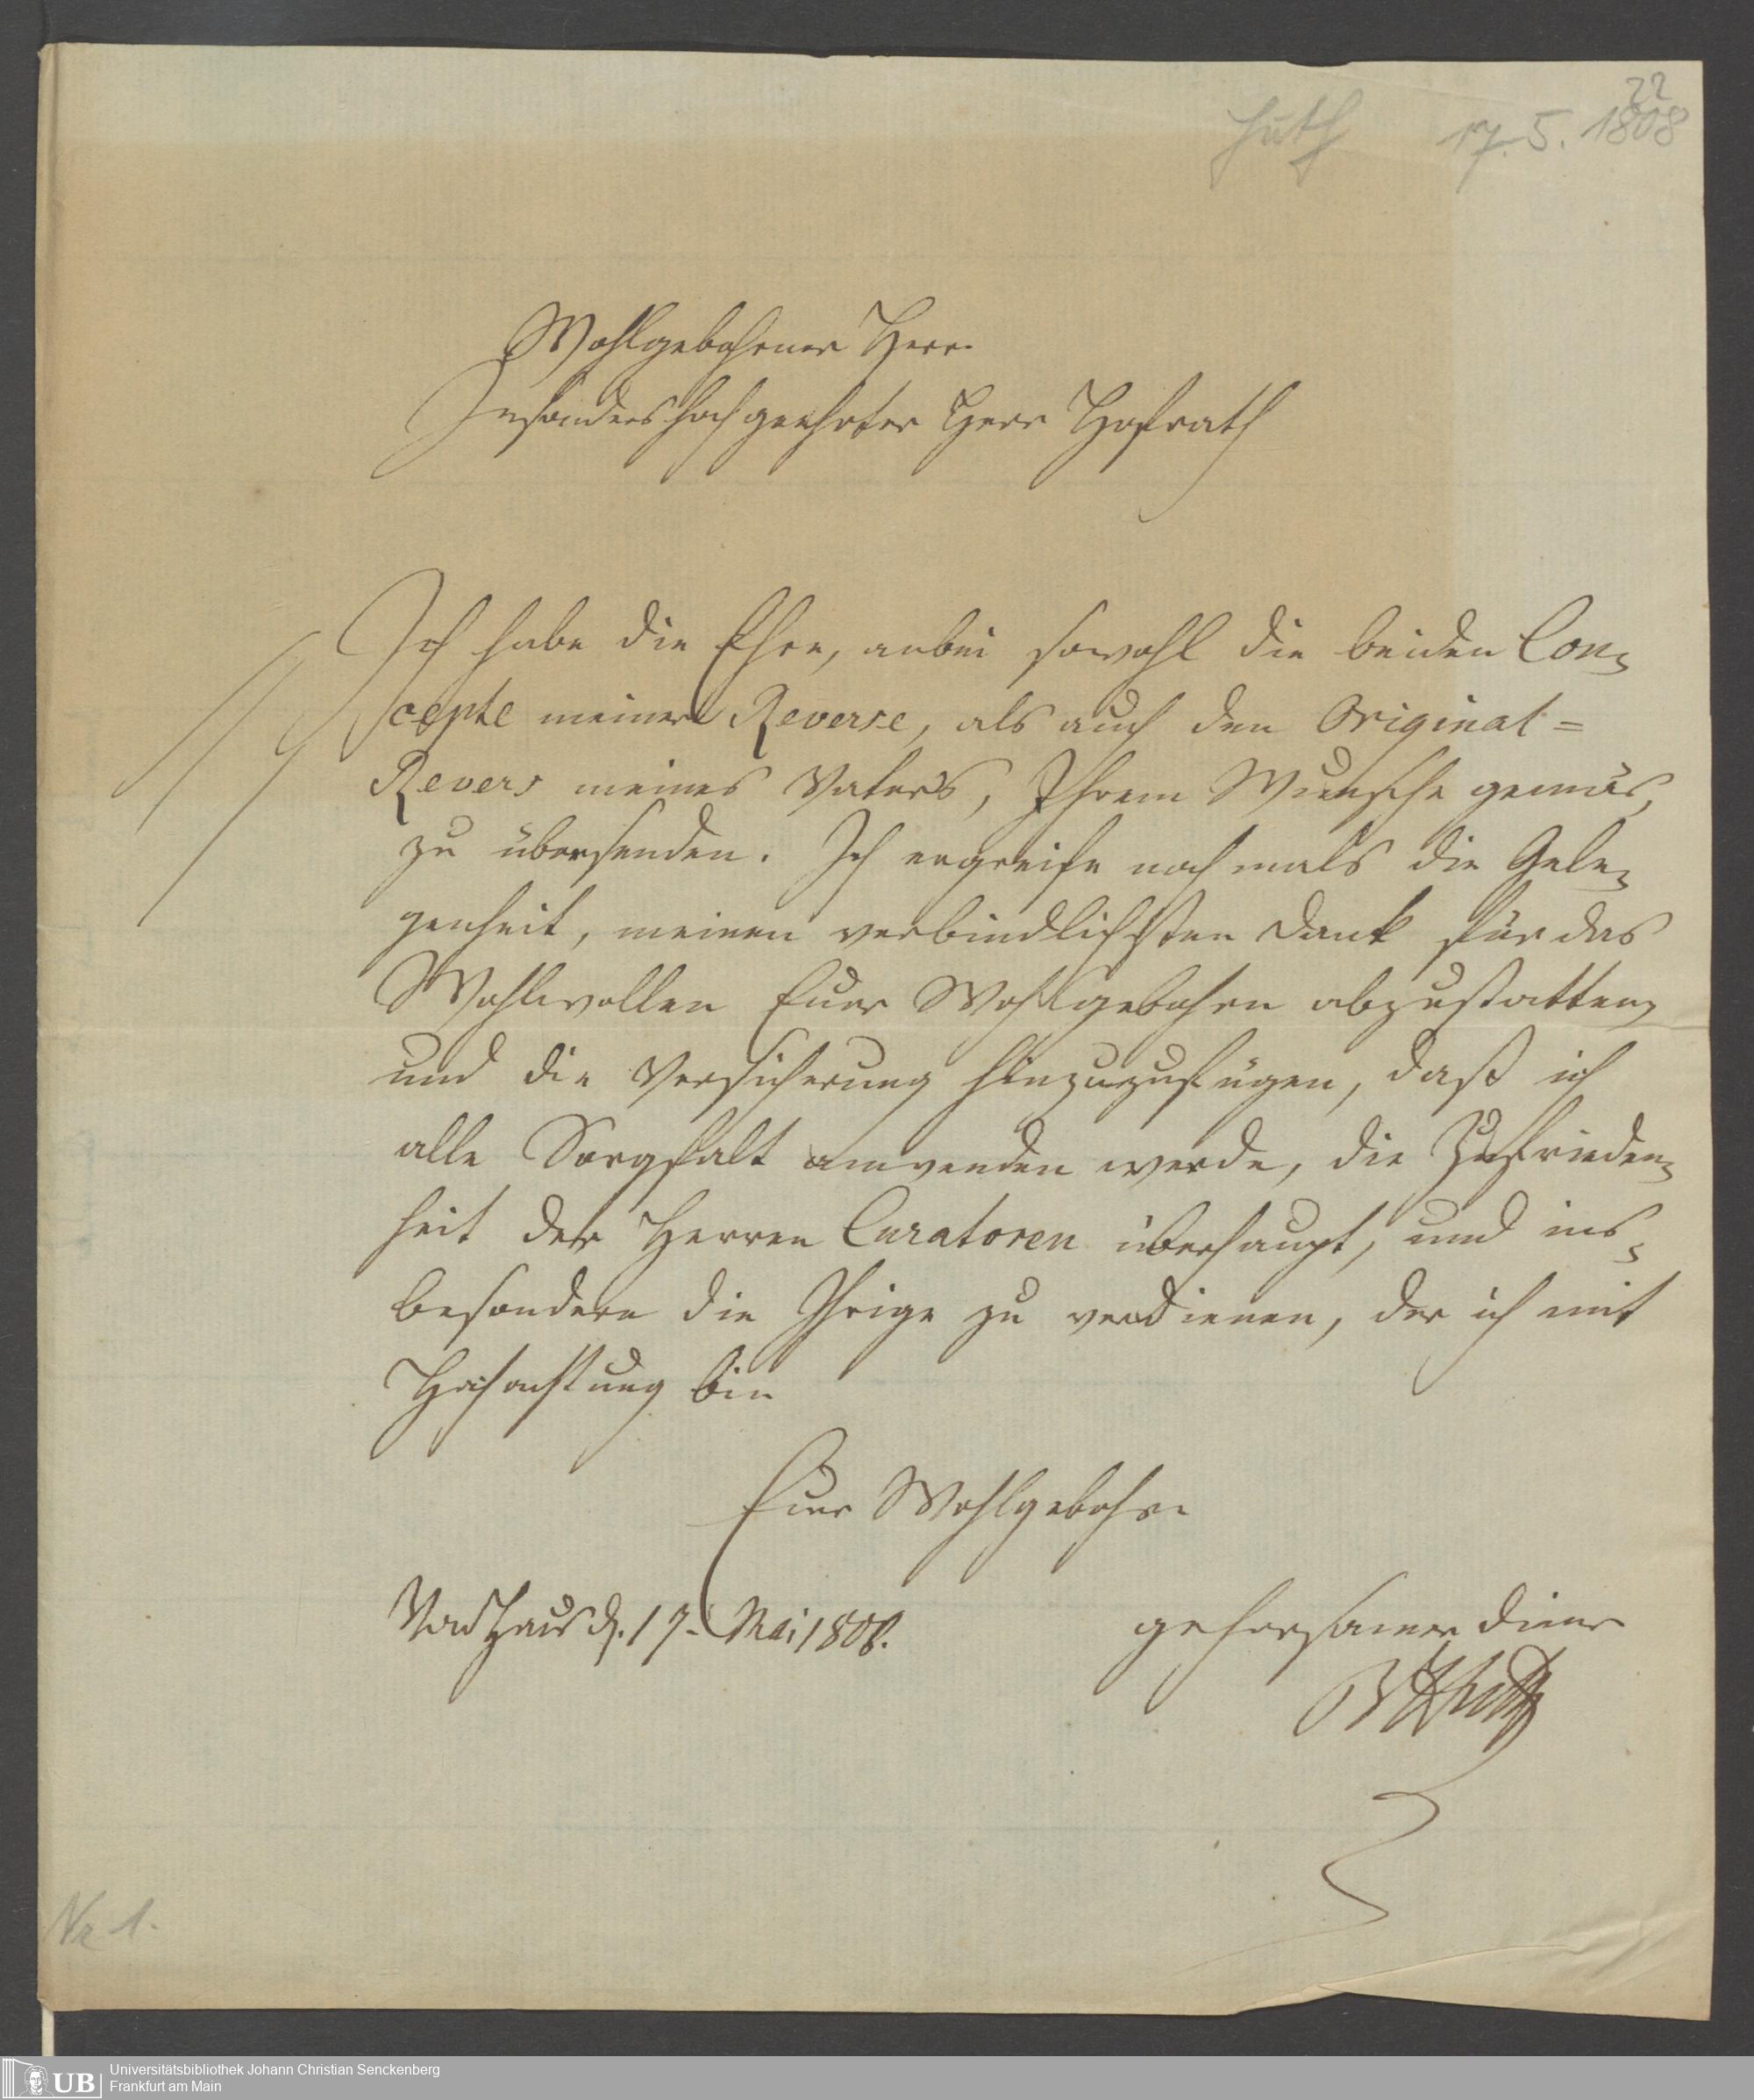 22
Huth 17. 5. 1808
Wohlgebohrner Herr
Insonders hochgeehrter Herr Hofrath
Ich habe die Ehre, anbei sowohl die beiden Con-
cepte meiner Reverse, als auch den Original=
Revers meines Vaters, Ihrem Wunsche gemäs,
zu übersenden. Ich ergreife nochmals die Gele-
genheit, meinen verbindlichsten Dank für das
Wohlwollen Euer Wohlgebohrn abzustatten,
und die Versicherung hinzuzufügen, daß ich
alle Sorgfalt anwenden werde, die Zufrieden-
heit der Herren Curatoren überhaupt, und ins-
besondere die Ihrige zu verdienen, der ich mit
Hochachtung bin
Euer Wohlgebohrn
d. 17. Mai 1808.
gehorsamer Diener
Huth
Nr 1.
UB
Universitätsbibliothek Johann Christian Senckenberg
Frankfurt am Main